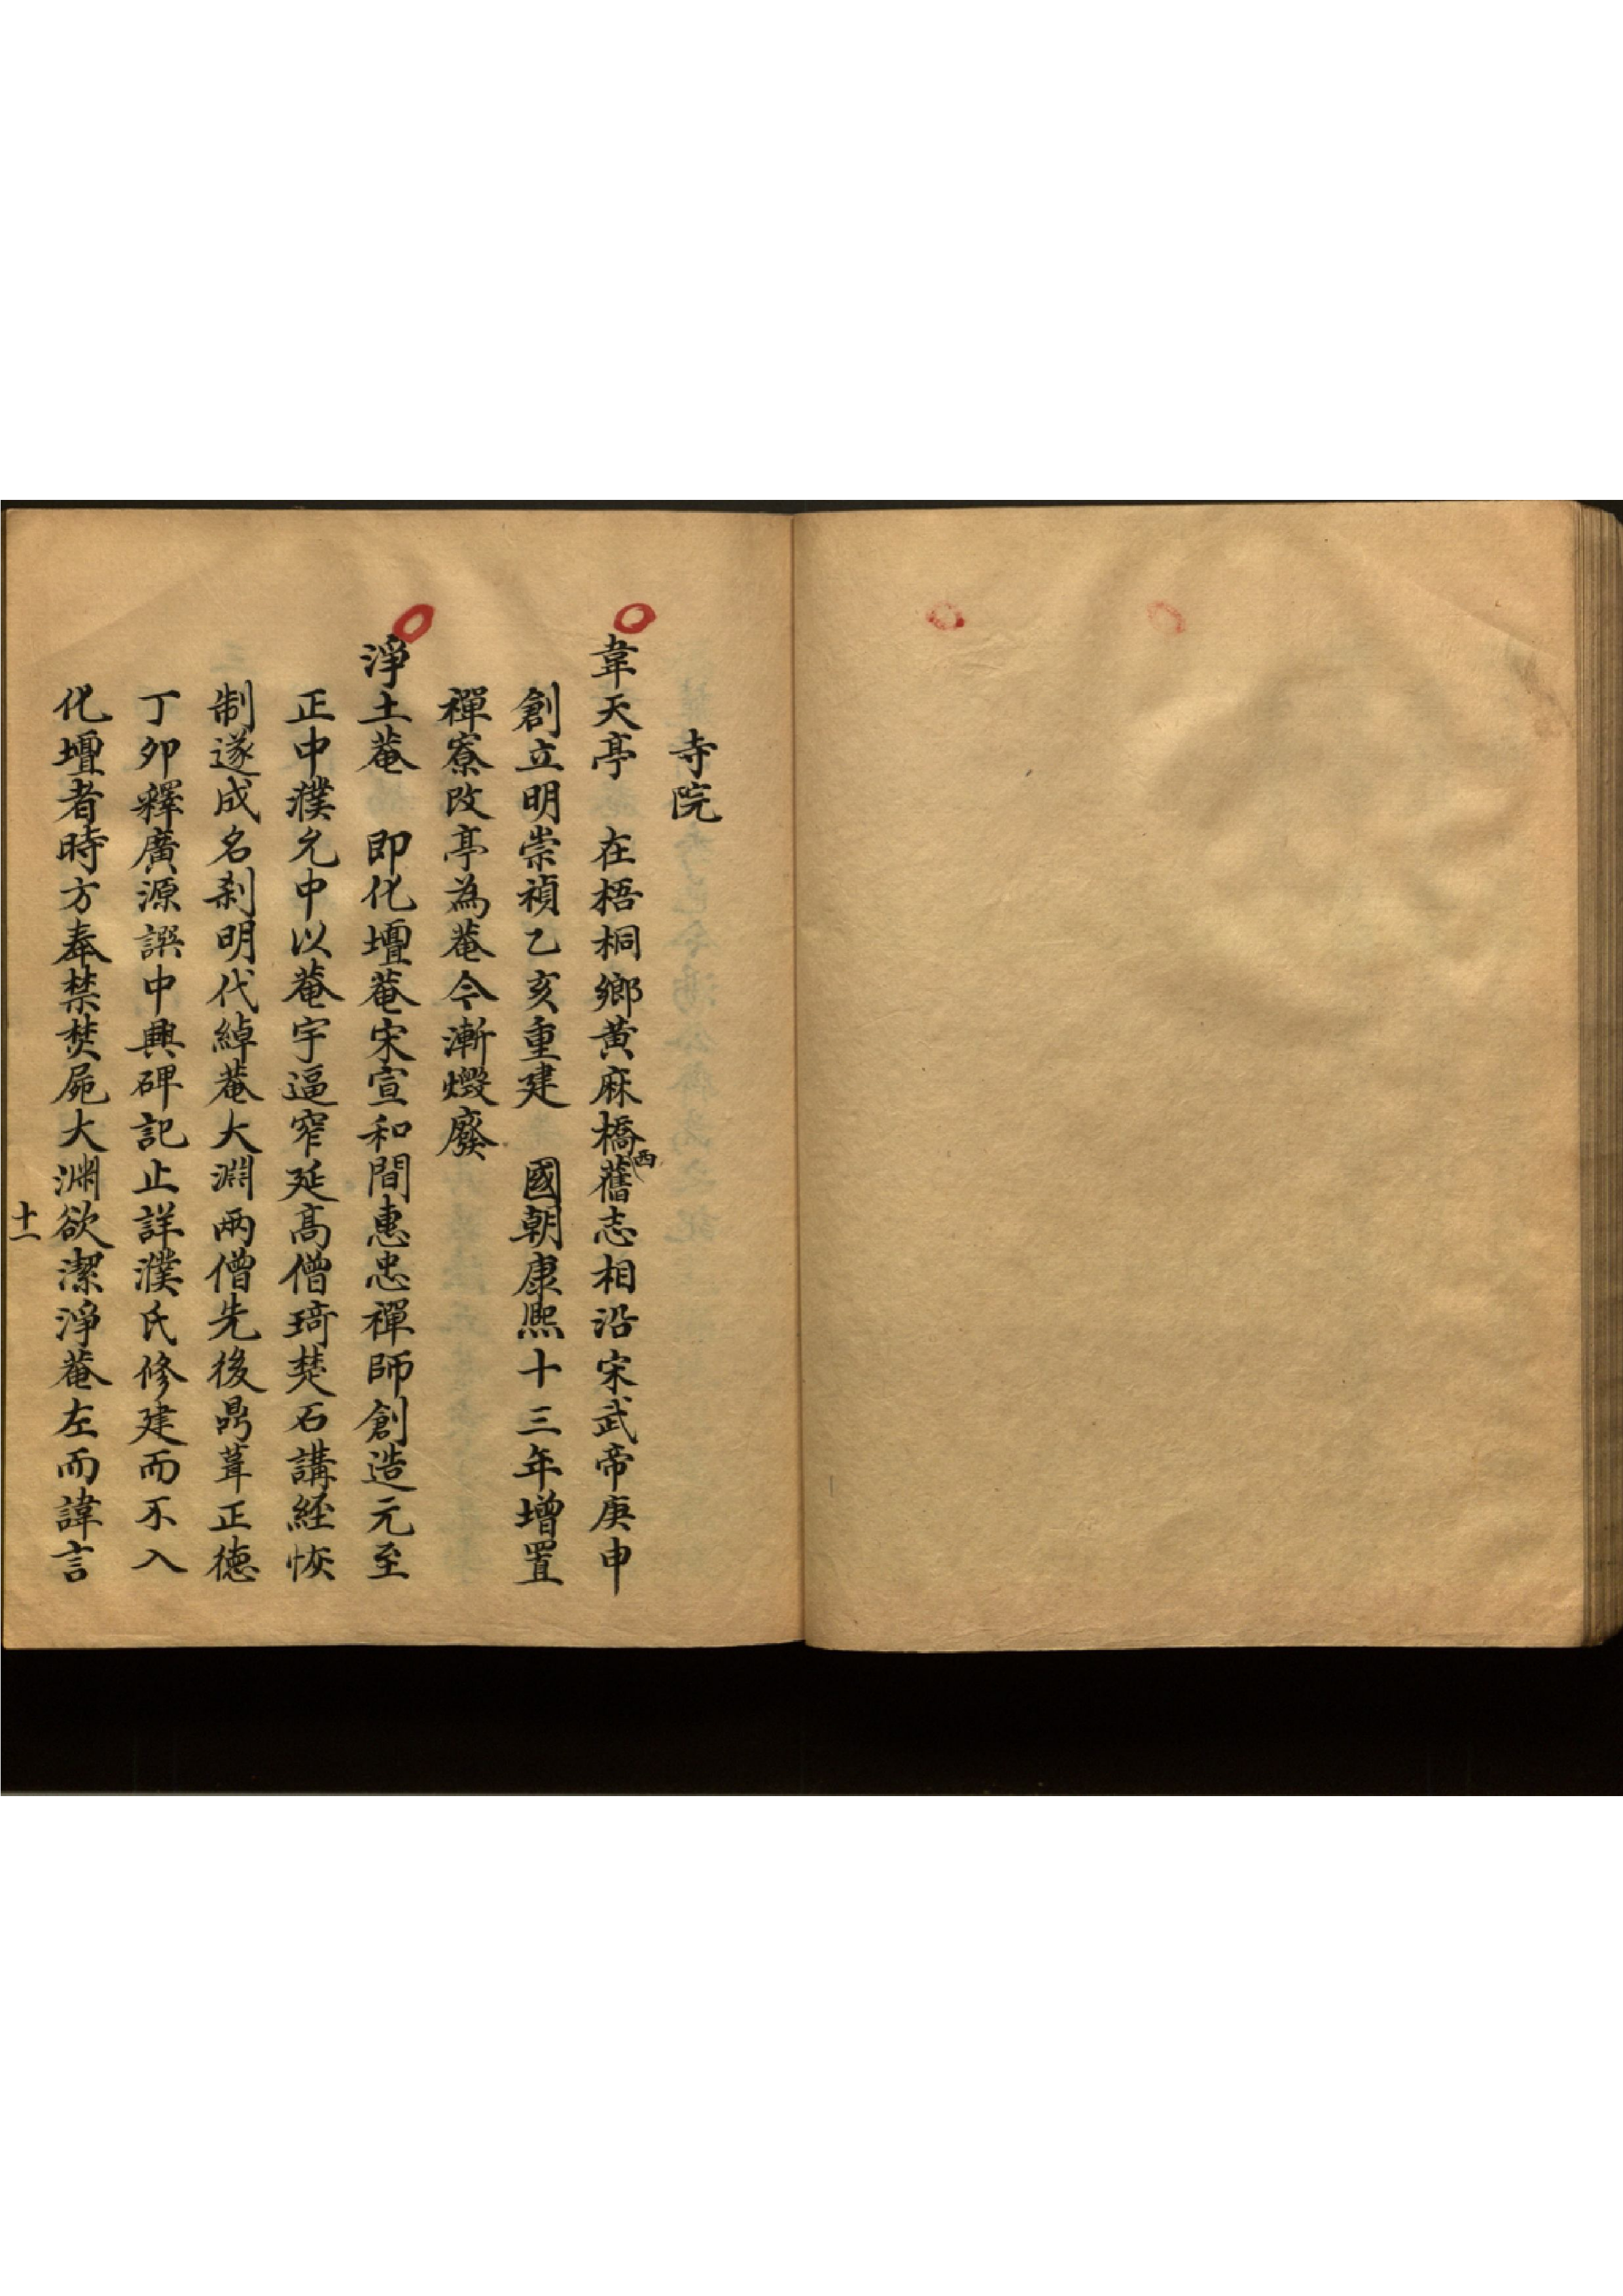 寺院
韋天亭　在梧桐鄉黃麻橋西舊志相沿宋武帝庚申
創立明崇禎乙亥重建　國朝康熙十三年增置
禪寮改亭為菴今漸燬廢
淨土菴　即化壇菴宋宣和間惠忠禪師創造元至
正中濮允中以菴宇逼窄延高僧琦楚石講經恢
制遂成名刹明代綽菴大淵兩僧先後鼎葺正德
丁卯釋廣源譔中興碑記止詳濮氏修建而不入
化壇者時方奉禁焚屍大渊欲潔淨菴左而諱言
十一